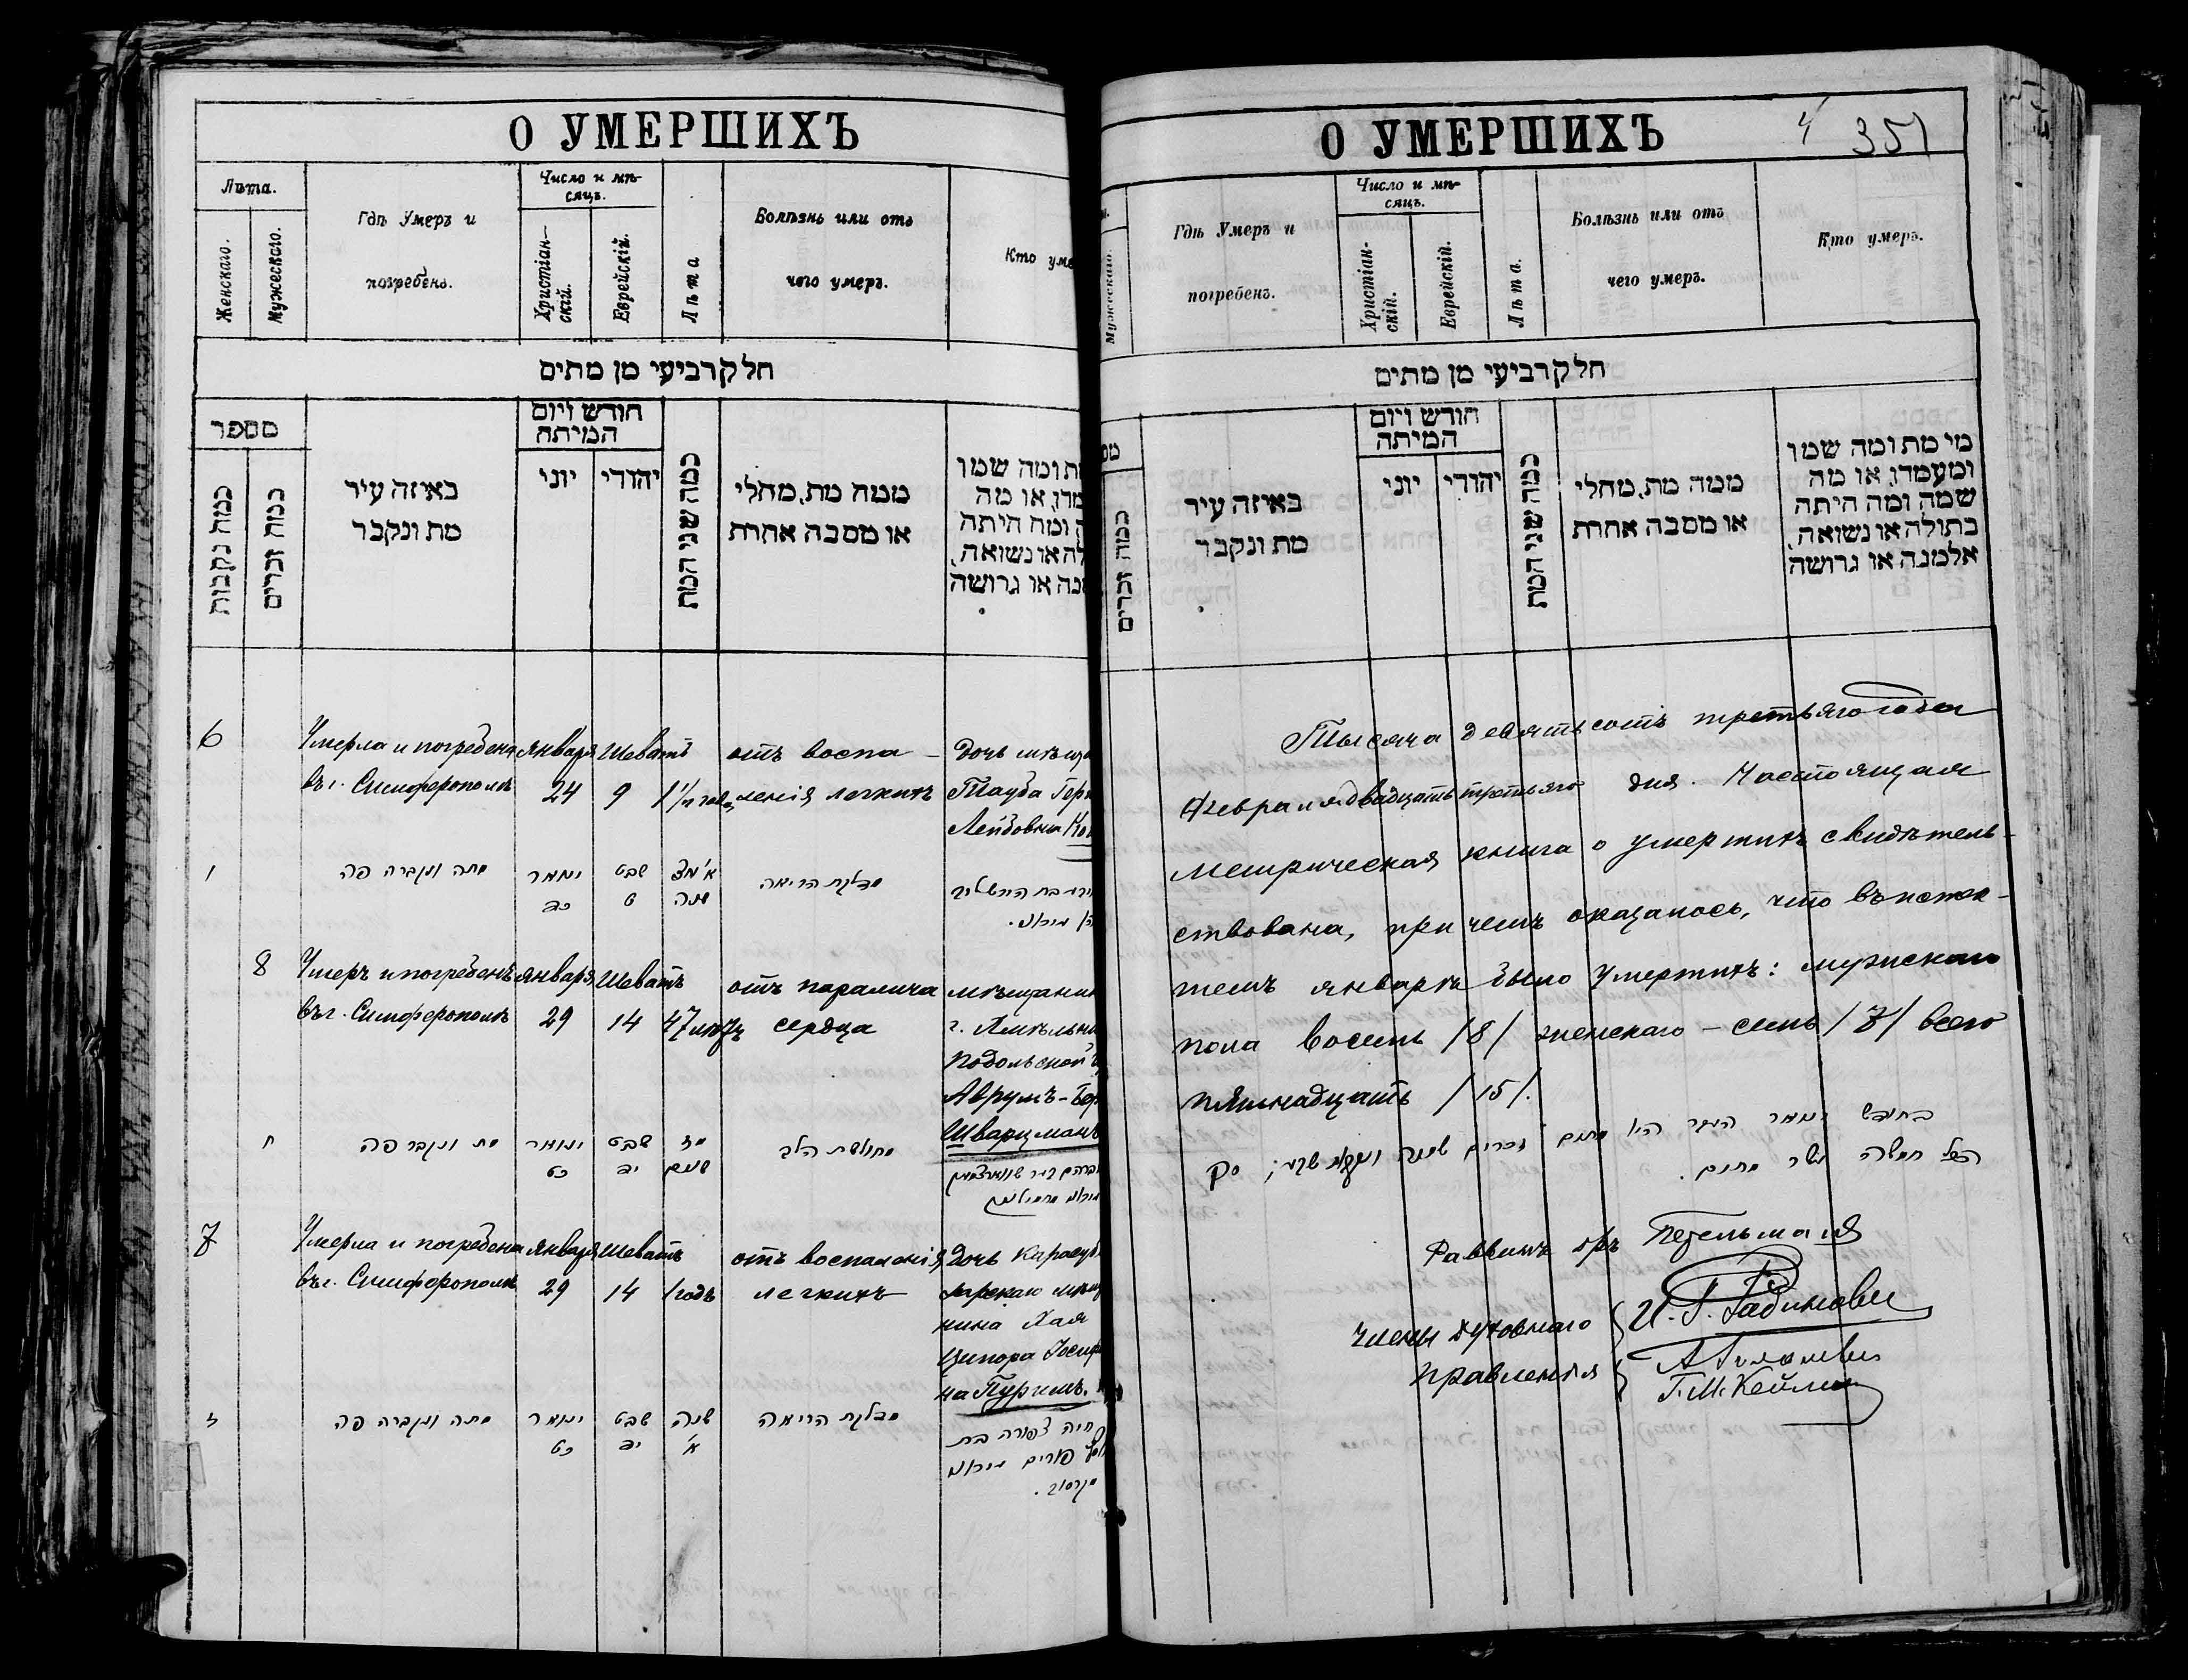 О УМЕРШИХЪ
Лѣта.
Женскаго.
Мужескаго.
Гдѣ Умеръ и
погребенъ.
Число и мѣ-
сяцъ.
Христіан-
скій.
Еврейскій.
Лѣта
Болѣзнь или отъ
чего умеръ.
Кто уме
חלק רביעי מן מתים
מספר
כמה נקבות
כמה זכרים
באיזה עיר
מת ונקבר
חודש ויום
המיתה
יוני
יהודי
כמה שני המת
ממה מת, מחלי
או מסבה אחרת
ת ומה שמו
מדו, או מה
ה ומה היתה
לה או נשואה,
נה או גרושה
6
Умерла и погребена
въ г. Симферополѣ
Января
24
Шеватъ
9
1 1/2 года
отъ воспа-
ленія легкихъ
Дочь мѣща
Тауба Гер
Лейбовна
מתה ונקברה פה
ינואר
כד
שבט
ט
שנה
מדלקת הריאה
8
Умеръ и погребенъ
въ г. Симферополѣ
Января
29
Шеватъ
14
47 лѣтъ
отъ паралича
сердца
мѣщанин
г.
Подольской г
Аврумъ-Бер
Шварцманъ
ח
מת ונקבר פה
ינואר
כט
שבט
יד
מז
שנים
מחולשת הלב
7
Умерла и погребена
въ г. Симферополѣ
Января
29
Шеватъ
14
1 годъ
отъ воспаленія
легкихъ
Дочь Карасуб
зарскаго мѣща
нина Хая
Ципора Іосиф
на Пуримъ.
ז
מתה ונקברה פה
ינואר
כט
שבט
יד
שנה
א'
מדלקת הריאה
חיה צפורה בת
יוסף פורים
О УМЕРШИХЪ
4
351
Мужескаго.
Гдѣ Умеръ и
погребенъ.
Число и мѣ-
сяцъ.
Христіан-
скій.
Еврейскій.
Лѣта.
Болѣзнь или отъ
чего умеръ.
Кто умеръ.
חלק רביעי מן מתים
מס
כמה זכרים
באיזה עיר
מת ונקבר
חודש ויום
המיתה
יוני
יהודי
כמה שני המת
ממה מת, מחלי
או מסבה אחרת
מי מת ומה שמו
ומעמדו, או מה
שמה ומה היתה
בתולה או נשואה,
אלמנה או גרושה
Тысяча девятьсотъ третьяго года
Февраля двадцать третьяго дня. Настоящая
метрическая книга о умершихъ свидѣтель-
ствована, при чемъ оказалось, что въ истек-
шемъ январѣ было умершихъ: мужскаго
пола восемь /8/ женскаго - семь /7/ всего
пятнадцать /15/.
בחודש ינואר העבר היו מתים זכרים שמנה
הכל חמשה עשר מתים.
Раввинъ
Члены духовнаго
Правленія